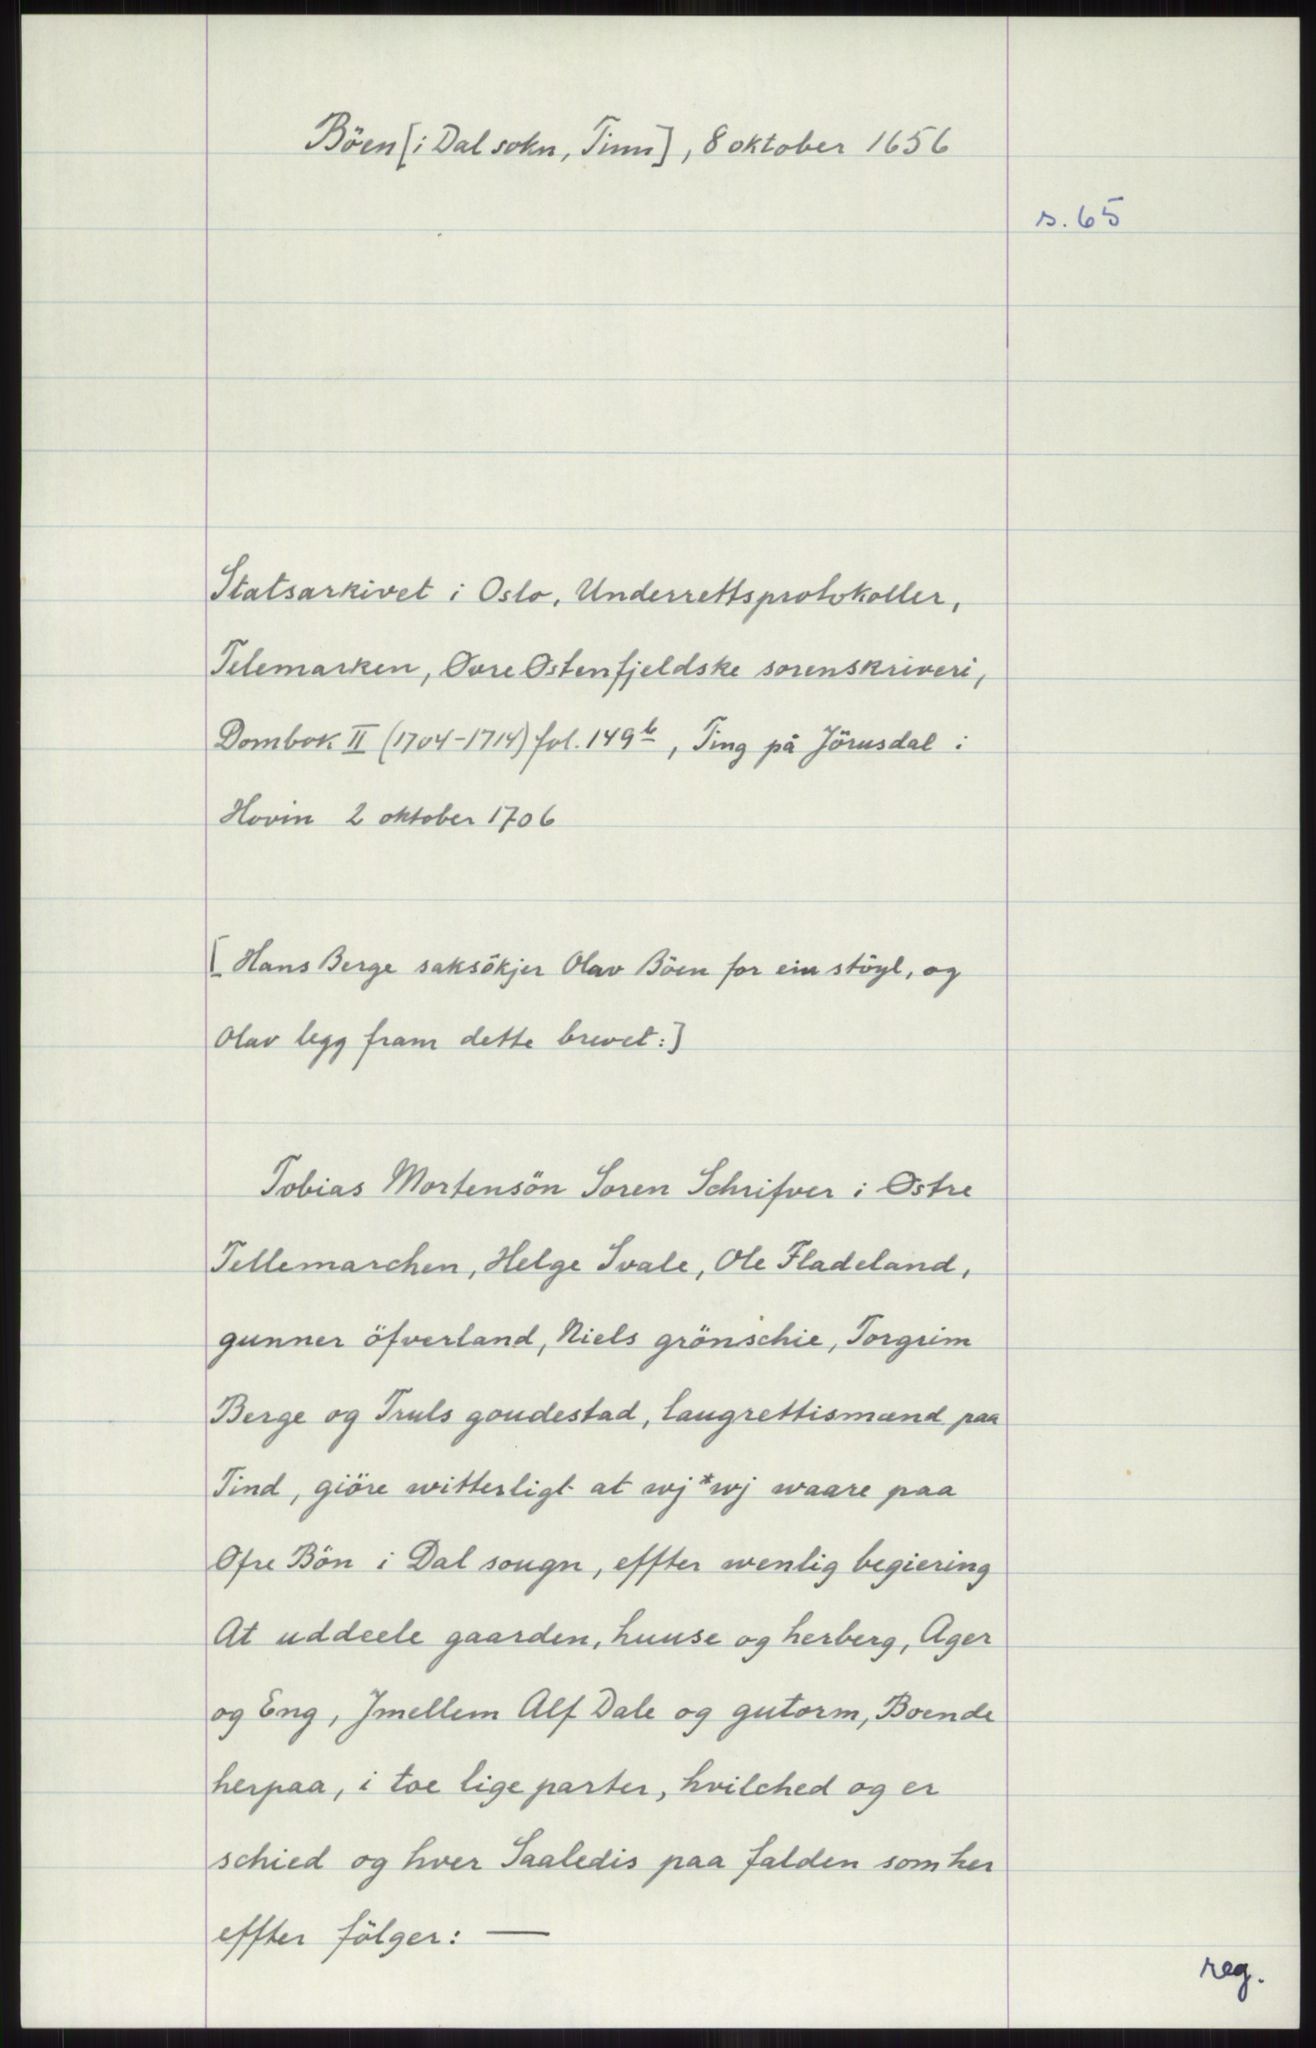 Böen [i Dal sokn, Tinn], 8 oktober 1656
s. 65
Statsarkivet i Oslo, Underrettsprotokoller,
Telemarken, Øvre Østenfjeldske sorenskriveri,
Dombok II (1704-1714) fol. 149b, Ting på Jörusdal i
Hovin 2 oktober 1706
[Hans Berge saksökjer Olav Böen for ein stöyl, og
Olav legg fram dette brevet:]
Tobias Mortensön Soren Schrifver i Østre
Tellemarchen, Helge Svale, Ole Fladeland,
gunner öfverland, Niels grönschie, Torgrim
Berge og Truls goudestad, laugrettismænd paa
Tind, giöre witterligt at wj *wj waare paa
Ofre Bön i Dal sougn, effter wenlig begiering
At uddeele gaarden, huuse og herberg, Ager
og Eng, Jmellem Alf Dale og gutorm, Boende
herpaa, i toe lige parter, hvilched og er
schied og hver Saaledis paa falden som her
effter fölger: —
reg.